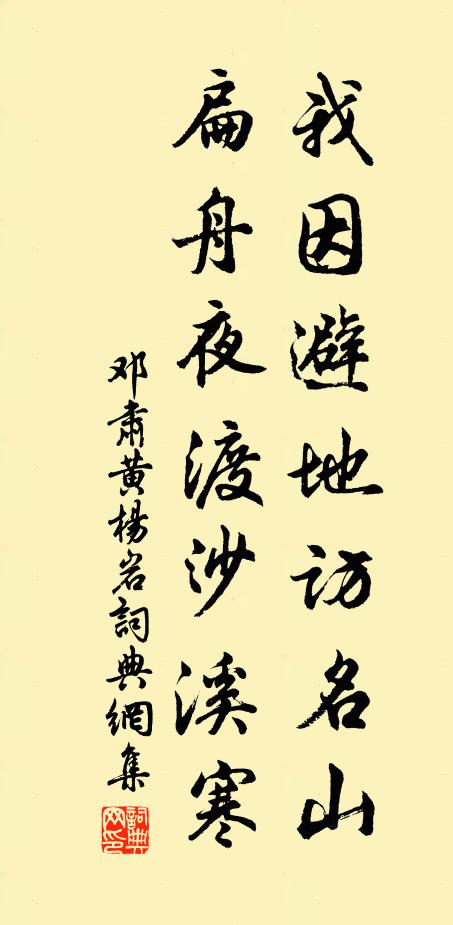 我因避地访名山
扁舟夜渡沙溪寒
邓肃黄杨岩詞典網集
詞典
网印